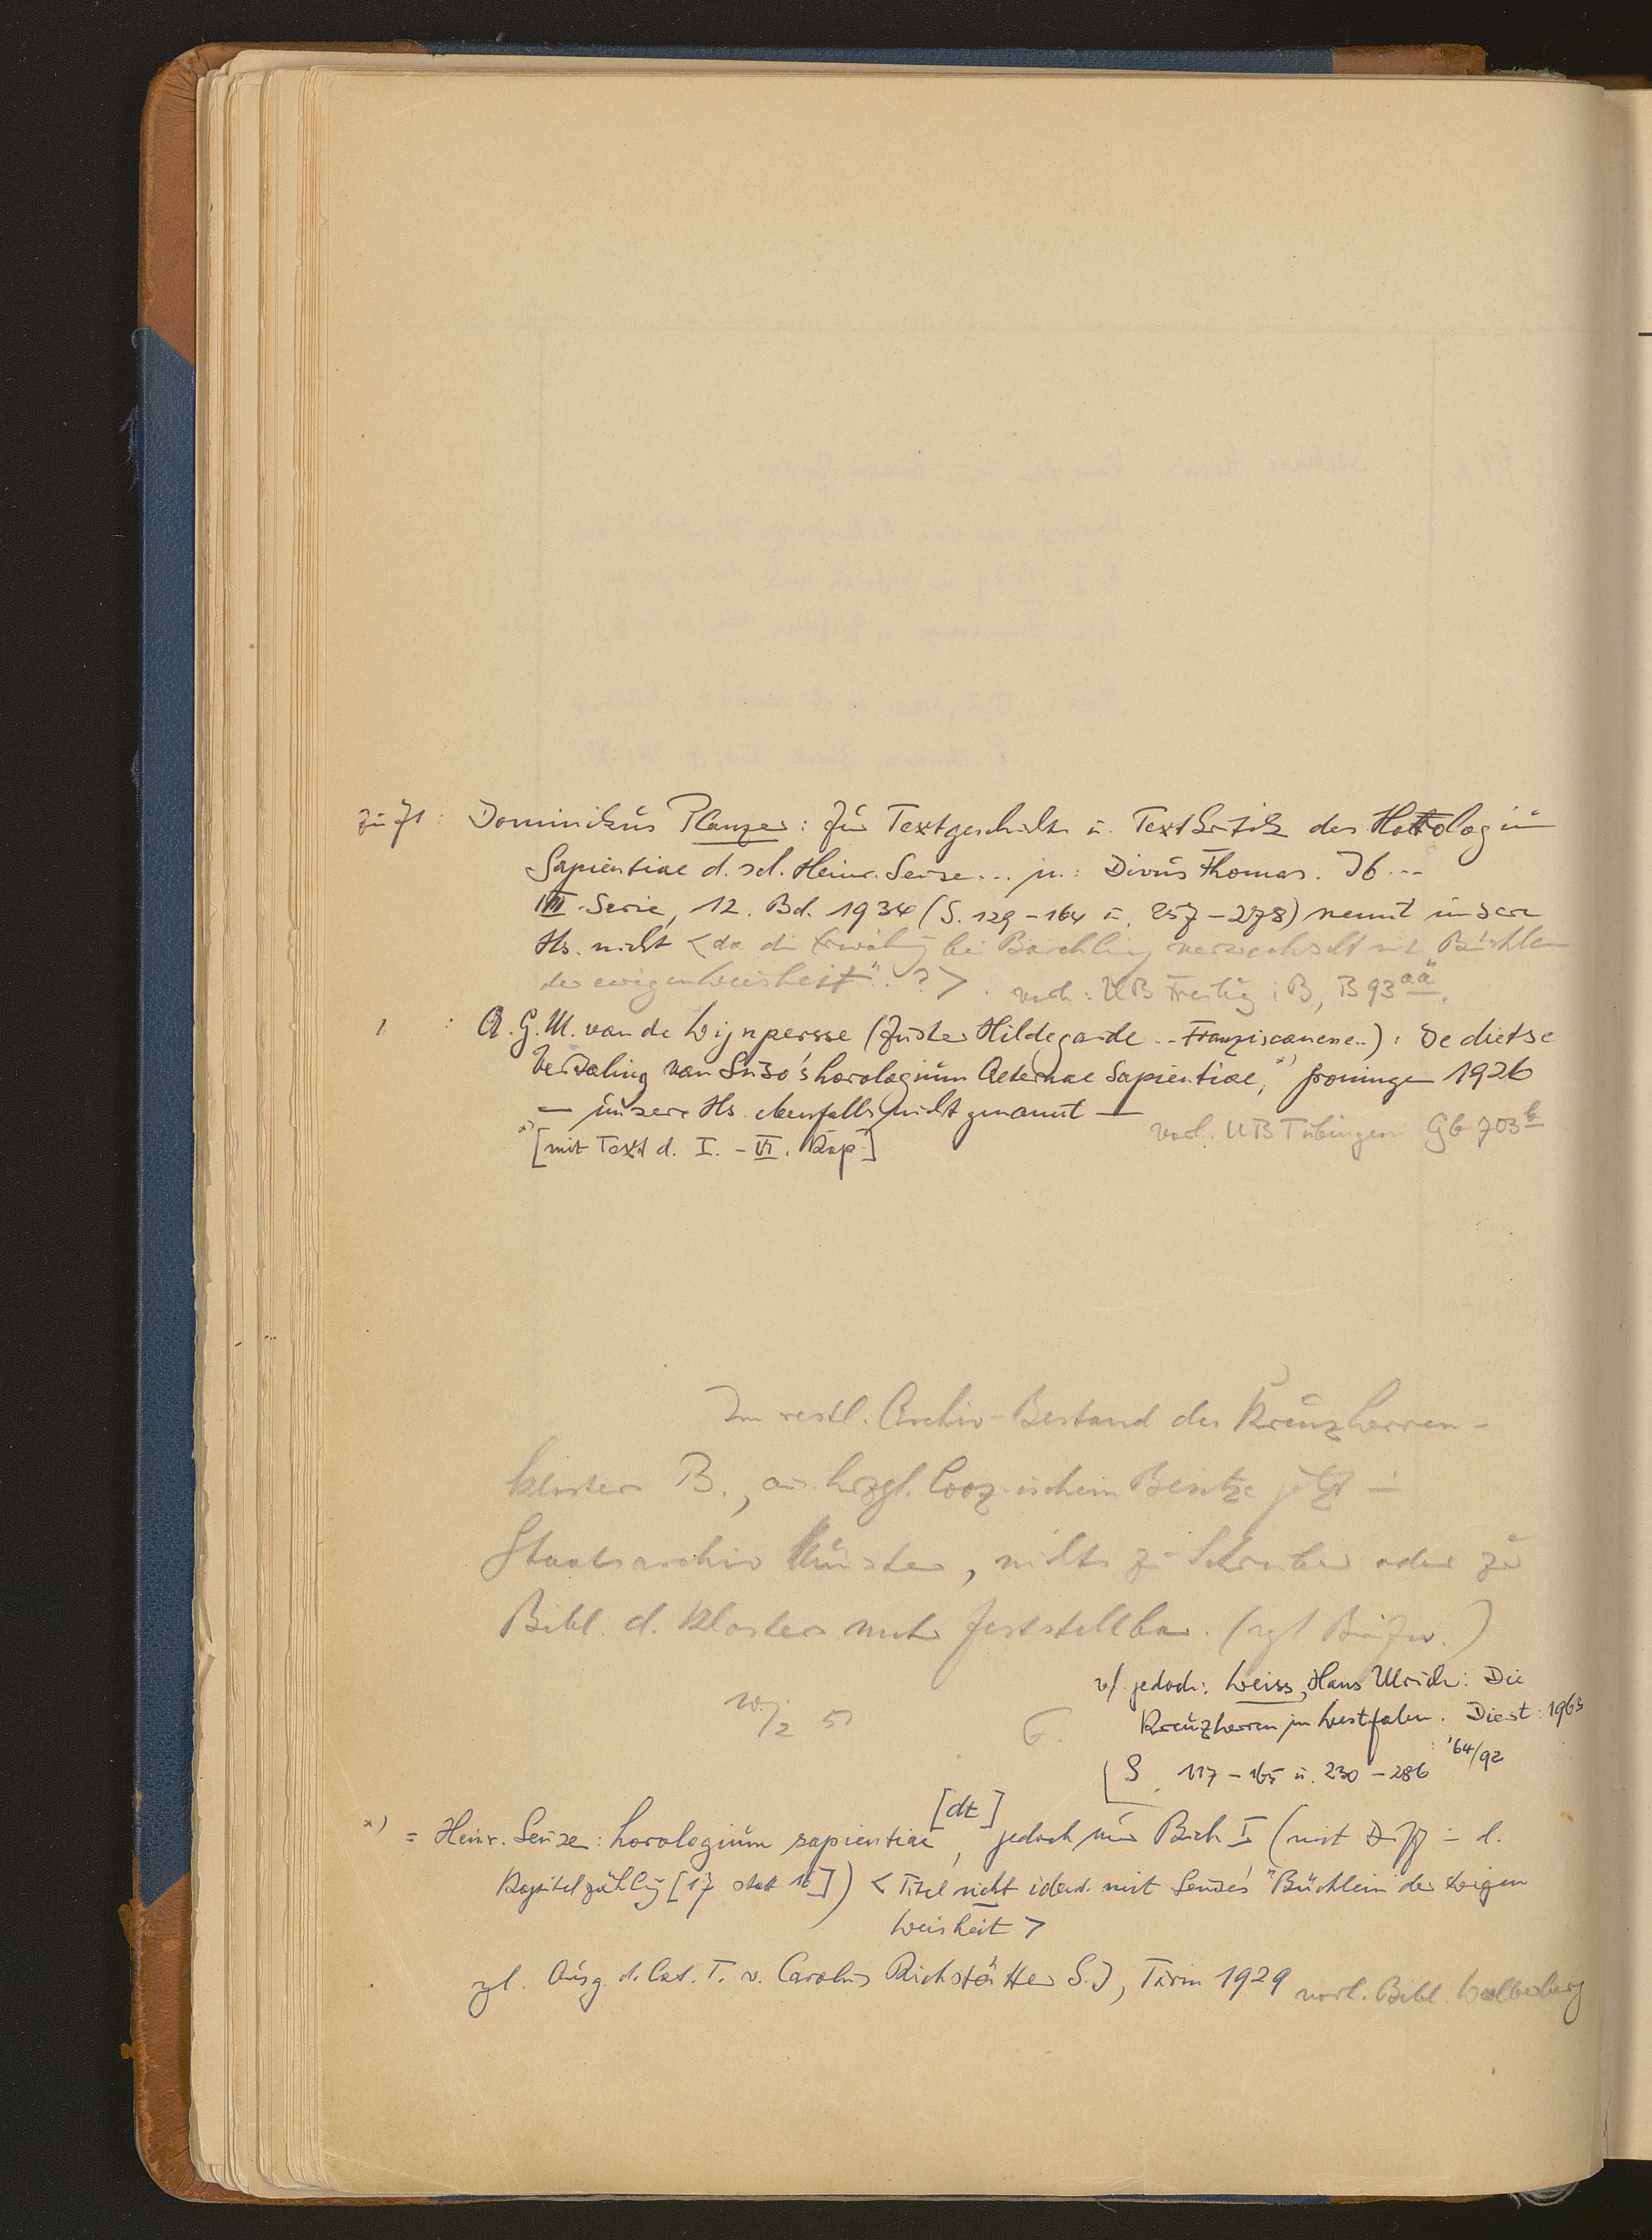 zu 71: Dominikus Planzer: Zur Textgeschichte u. Textkritik des Horologium
Sapientiae d. sel. Heinr. Seuse... in: Divus Thomas. Jb...
III. Serie, 12. Bd. 1934 (S. 129-164 u. 257-278) nennt unsere
Hs. nicht <da die Erwähng bei Borchling verwechselt mit "Büchlein
der ewigen Weisheit". ?> . vorh: UB Freibg i B, B 93 aä.
" : A.G.M. van de Wijnpersse (Zuster Hildegarde .. Franziscanene..): De dietse
Vertaling van Suso's horologium Aeternae Sapientiae, x) Groningen 1926
— unsere Hs. ebenfalls nicht genannt —
vorh. UB Tübingen Gb 703 b
x) [mit Text d. I. - VI. Kap.]
Im restl. Archiv-Bestand des Kreuzherren-
klosters B., aus hrzgl. Looz-ischem Besitze jetzt im
Staatsarchiv Münster, nichts zu Schreiber oder zur
Bibl. d. Klosters mehr feststellbar. (vgl. )
vgl. jedoch: Weiss, Hans Ulrich: Die
Kreuzherren in Westfalen. Diest: 1963
/2 51 F.
[S. 117-165 u. 230-286 '64/92
x) = Heinr. Seuse: horologium sapientiae [dt], jedoch nur Buch I (mit Diff. in d.
Kapitelzählg [17 statt 16]) <Titel nicht ident. mit Seuse's "Büchlein der Ewigen
Weisheit>
vgl. Ausg. d. lat. T. v. Carolus Richstätter S.J, Turin 1929 vorh. Bibl. Walberberg